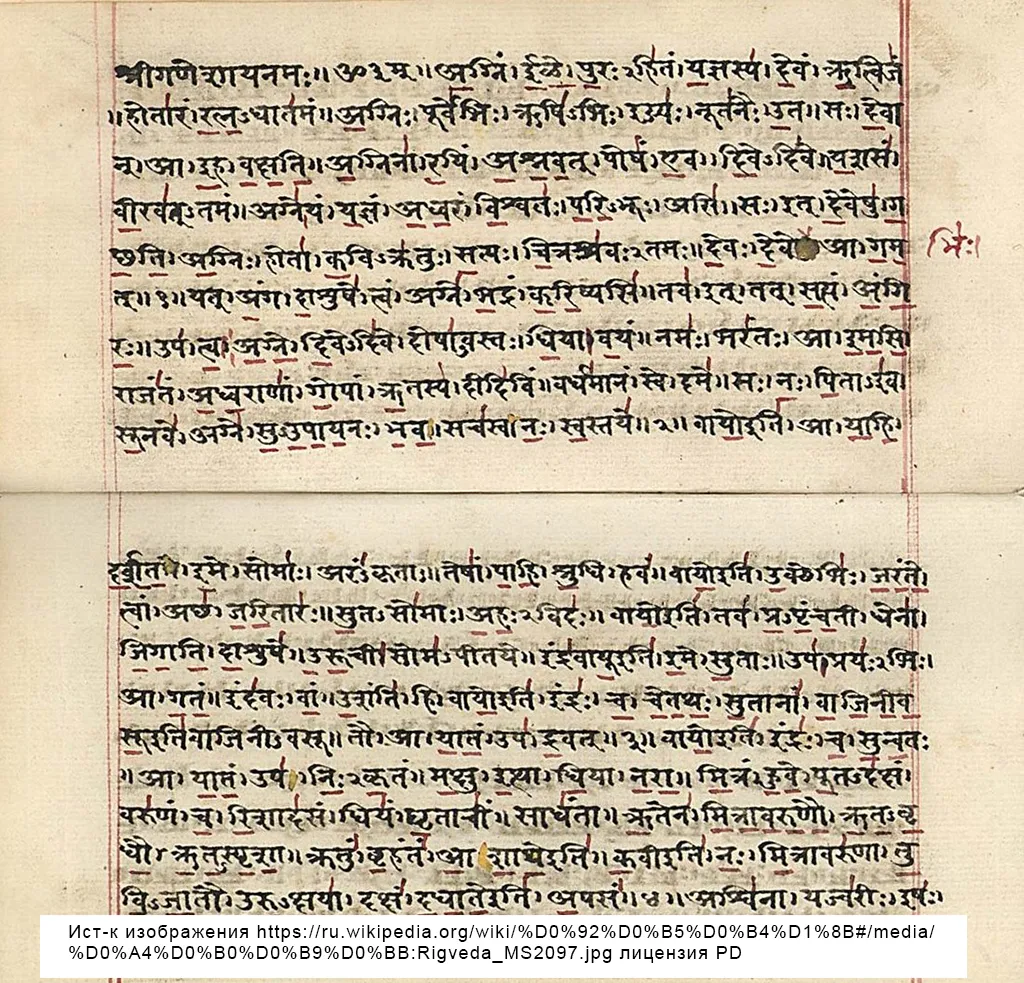 श्रीगणेशायनमः॥ॐ३म्॥अग्निं।ईळे।पुरः२हितं।यज्ञस्य।देवं।ऋत्विजं
॥होतारं।रत्नऽधातमं॥अग्निः।पूर्वेभिः।ऋषिऽभिः।ईड्यः।नूतनैः।उत॥सः।देवा
न्।आ।इह।वक्षति॥अग्निना।रयिं।अश्नवत्।पोषं।एव।दिवेऽदिवे॥यशसं।
वीरवत्ऽतमं॥अग्ने।यं।यज्ञं।अध्वरं।विश्वतः।परिऽभूः।असि॥सः।इत्।देवेषु।ग
छति।अग्निः।होता।कविऽक्रतुः।सत्यः।चित्रश्रवः२तमः॥देवः।देवे आ।गम
भिः।
त्॥१॥यत्।अंग।दाशुषे।त्वं।अग्ने।भद्रं।करिष्यसि॥तव।इत्।तत्।सत्यं।अंगि
रः॥उप।त्वा।अग्ने।दिवेऽदिवे।दोषाऽवस्तः।धिया।वयं॥नमः।भरंतः।आ।इमसि
राजंतं।अध्वराणां।गोपां।ऋतस्य।दीदिविं॥वर्धमानं।स्वे।दमे॥सः।नः।पिताऽइव
सूनवे।अग्ने।सुऽउपायनः।भव।सचस्व।नः।स्वस्तये॥२॥वायोइति।आ।याहि।
दर्शत।इमे।सोमाः।अरंऽकृताः॥तेषां।पाहि।श्रुधि।हवं॥वायोइति।उक्थेभिः।जरंते
त्वां।अछ।जरितारः॥सुतऽसोमाः।अहः२विदः॥वायोइति।तव।प्रऽपृंचती।धेना।
जिगाति।दाशुषे॥उरूची।सोमऽपीतये॥इंद्रवायूइति।इमे।सुताः॥उप।प्रयः२भिः।
आ।गतं॥इंदवः।वां॥उशंति।हि।वायोइति।इंद्रः।च।चेतथः।सुतानां।वाजिनीव
सूइतिवाजिनीऽवसू॥तौ।आ।यातं।उप।द्रवत्॥३॥वायोइति।इंद्रः।च।सुन्वतः
॥आ।यातं।उप।निः२कृतं॥मक्षु।इत्था।धिया।नरा॥मित्रं।हुवे।पूतऽदक्षं।
वरुणं।च।रिशादसं।धियं।घृताचीं॥साधंता॥ऋतेन।मित्रावरुणौ।ऋतऽवृ
धौ।ऋतऽस्पृशा॥ऋतुं।बृहंतं।आशाथेइति॥कवीइति।नः।मित्रावरुणा।तु
विऽजातौ।उरुऽक्षया।दक्षं।दधातेइति।अपसं॥४॥अश्विना।यज्वरीः।इषः।
Ист-к изображения https://ru.wikipedia.org/wiki/%D0%92%D0%B5%D0%B4%D1%8B#/media/
%D0%A4%D0%B0%D0%B9%D0%BB:Rigveda_MS2097.jpg лицензия PD